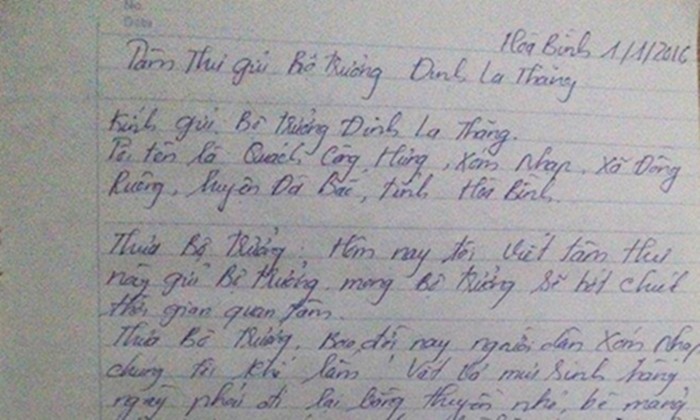 No.
Date
Hòa Bình 1/1/2016
Tâm Thư gửi Bộ Trưởng Đinh La Thăng
Kính gửi Bộ Trưởng Đinh La Thăng.
Tôi tên là Quách Công Hùng, Xóm Nhạp, Xã Đồng
Ruộng, huyện Đà Bắc, tỉnh Hòa Bình.
Thưa Bộ Trưởng: Hôm nay tôi viết tâm thư
này gửi Bộ trưởng mong Bộ Trưởng sẽ bớt chút
thời gian quan tâm.
Thưa Bộ Trưởng, Bao đời nay người dân Xóm Nhạp
chúng tôi khổ lắm. Vất vả mưu sinh hàng
ngày phải đi lại bằng thuyền nhỏ bé mang